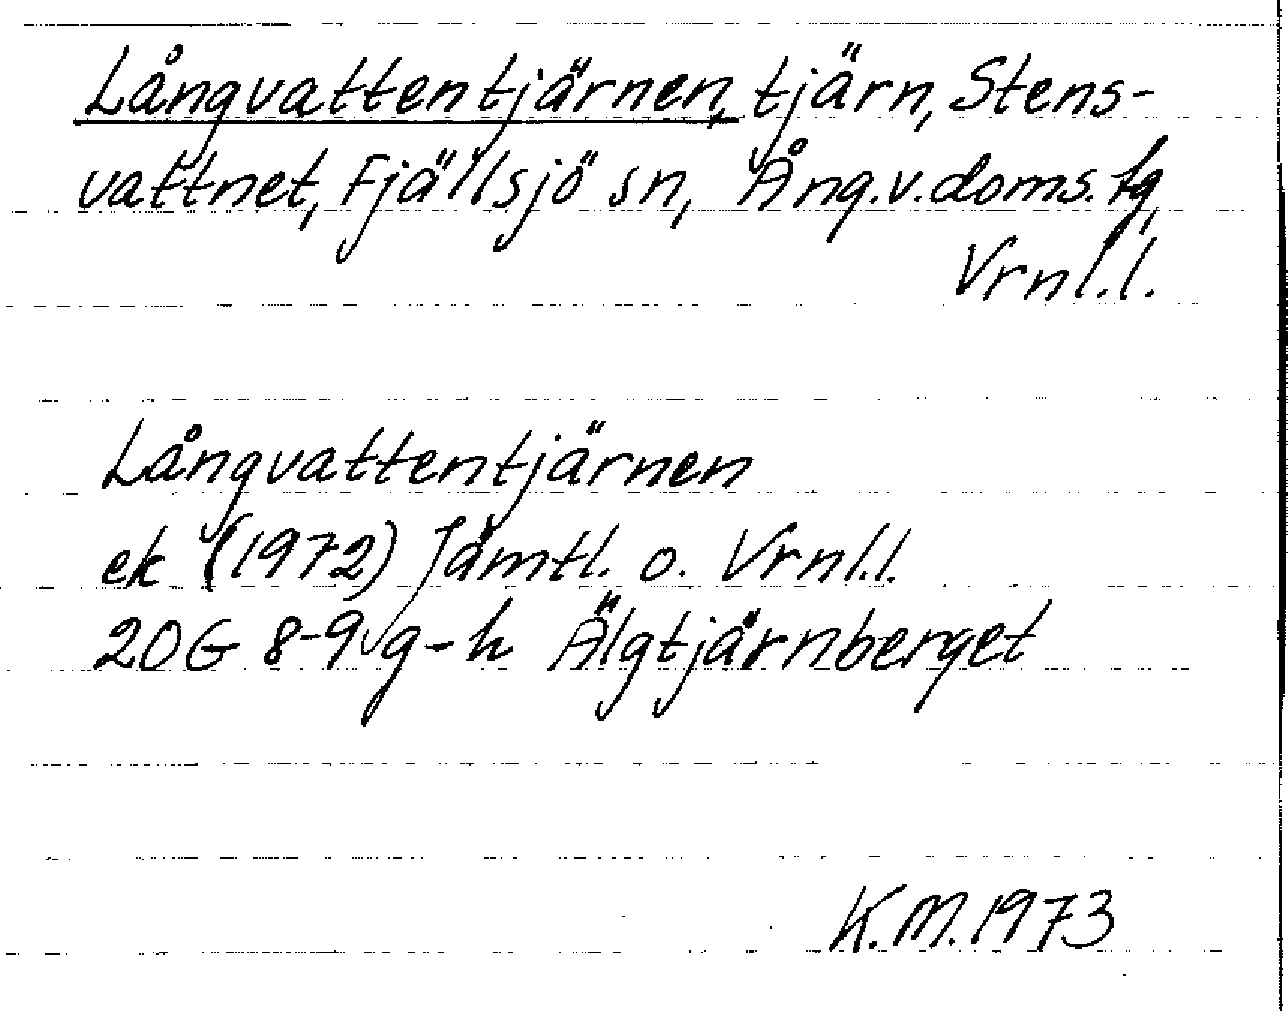 Långvattentjärnen, tjärn, Stens-
vattnet, Fjällsjö sn, Ång.v.doms.fg,
Vrnl.l.
Långvattentjärnen
ek (1972) Jämtl. o. Vrnl.l.
20G 8-9 g-h Älgtjärnberget
K.M.1973